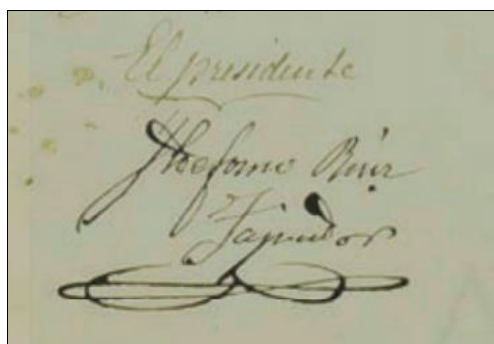 El presidente
Ildefonso Ruiz
Tapiador